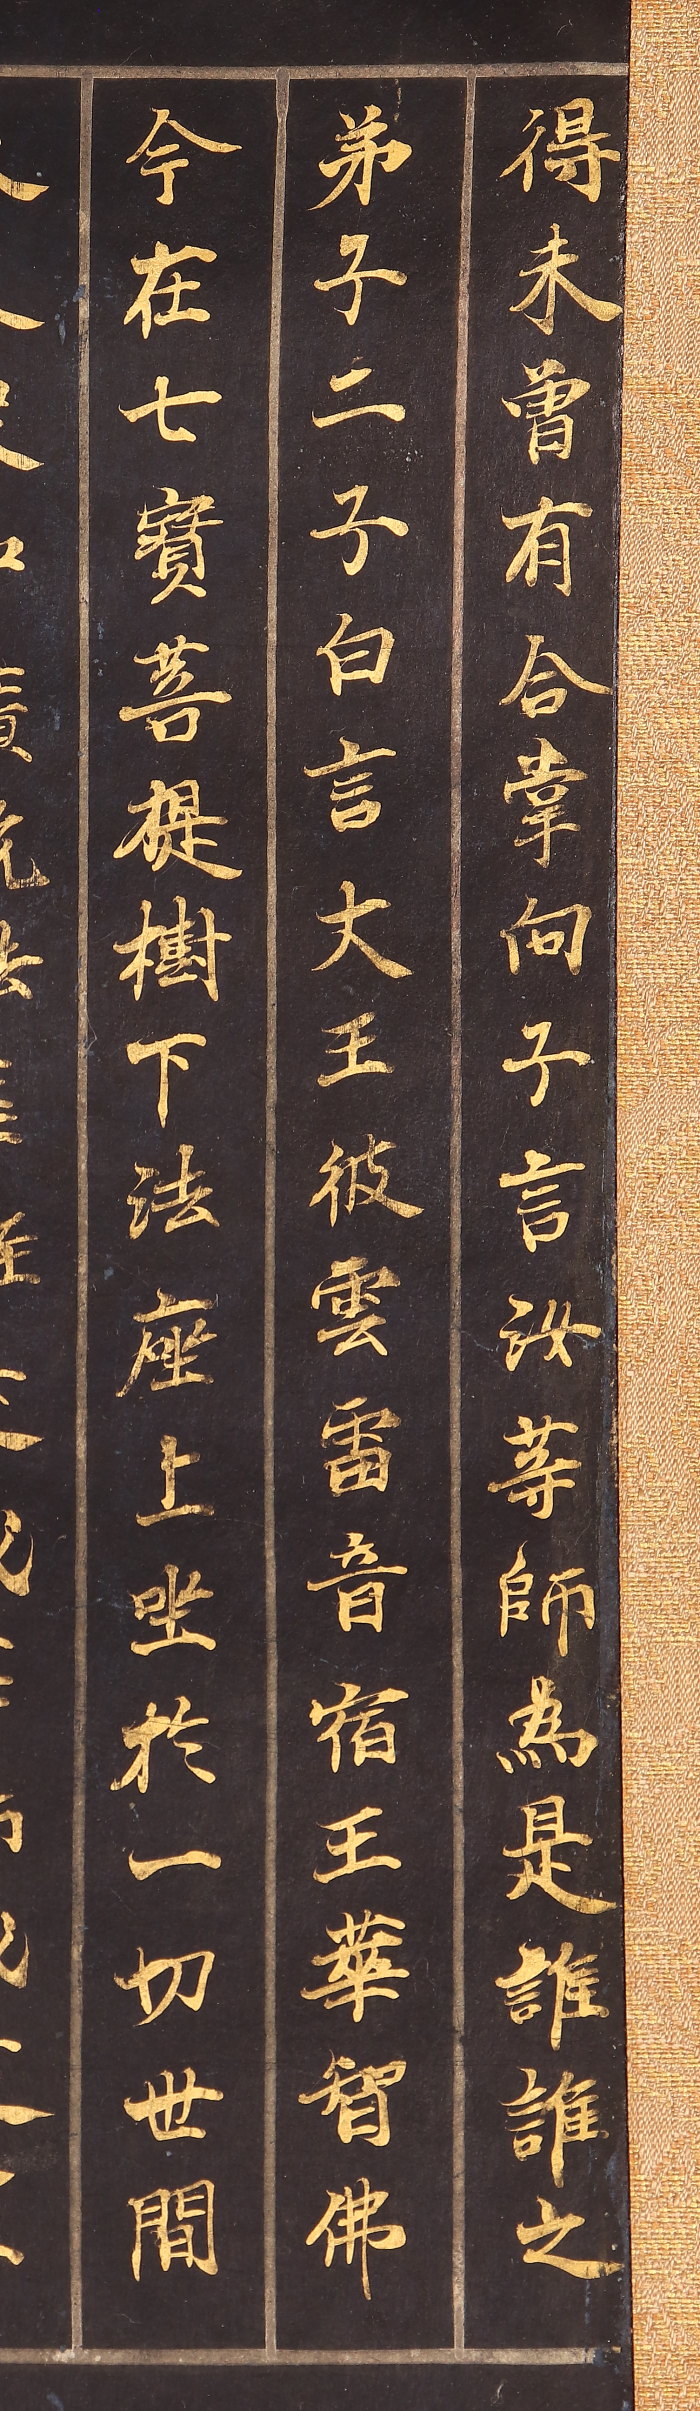 得未曾有合掌向子言汝等師為是誰誰之
弟子二子白言大王彼雲雷音宿王華智佛
今在七寶菩提樹下法座上坐於一切世間